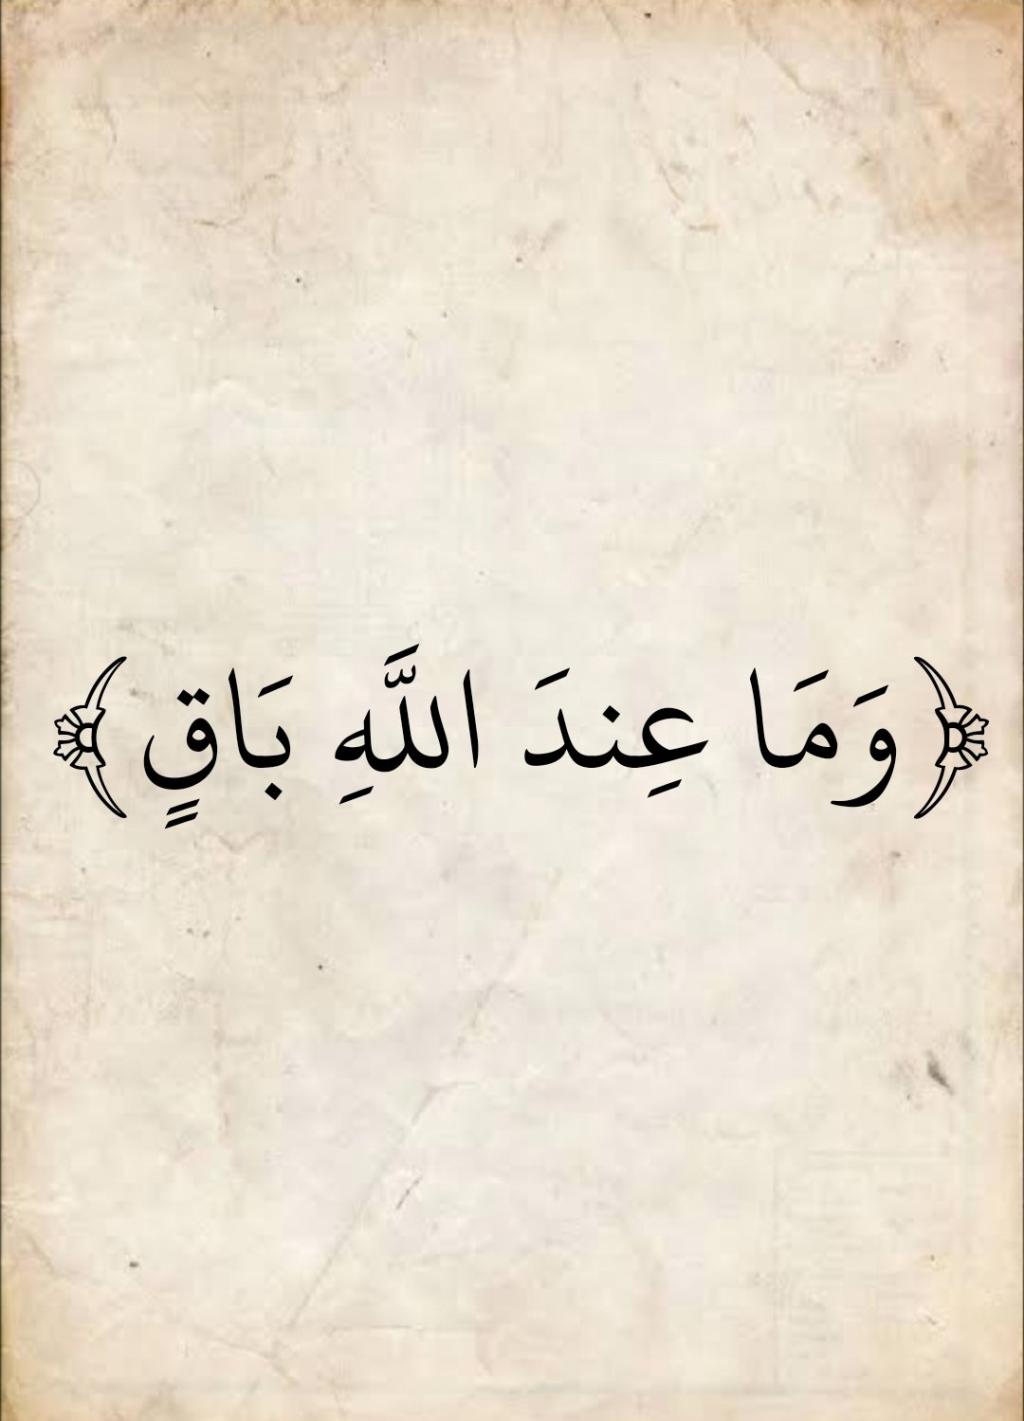 ﴿وَمَا عِندَ اللَّهِ بَاقٍ﴾